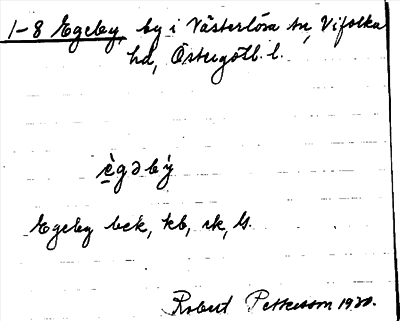 1-8 Egeby, by i Västerlösa sn, Vifolka
hd, Östergötl. l.
ègəbý
Egeby bek, kb, sk, G.
Robert Pettersson 1920.